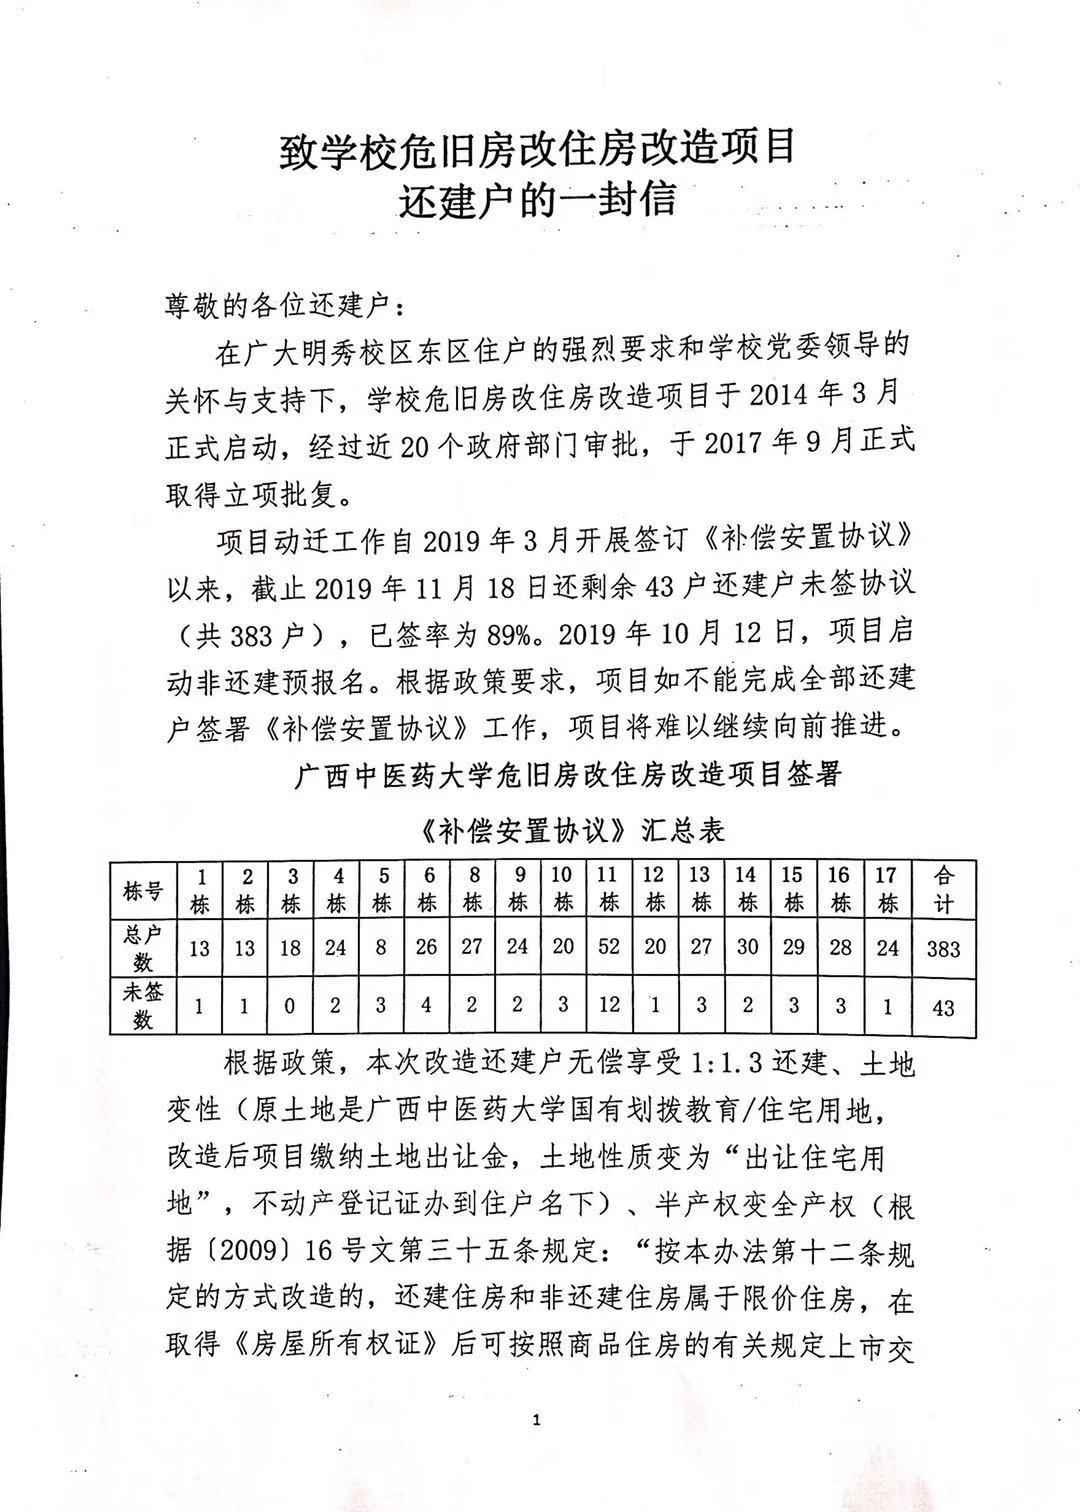 致学校危旧房改住房改造项目
还建户的一封信
尊敬的各位还建户：
在广大明秀校区东区住户的强烈要求和学校党委领导的
关怀与支持下，学校危旧房改住房改造项目于 2014 年 3 月
正式启动，经过近 20 个政府部门审批，于 2017 年 9 月正式
取得立项批复。
项目动迁工作自 2019 年 3 月开展签订《补偿安置协议》
以来，截止 2019 年 11 月 18 日还剩余 43 户还建户未签协议
（共 383 户），已签率为 89%。2019 年 10 月 12 日，项目启
动非还建预报名。根据政策要求，项目如不能完成全部还建
户签署《补偿安置协议》工作，项目将难以继续向前推进。
广西中医药大学危旧房改住房改造项目签署
《补偿安置协议》汇总表
栋号 1栋 2栋 3栋 4栋 5栋 6栋 8栋 9栋 10栋 11栋 12栋 13栋 14栋 15栋 16栋 17栋 合计
总户数 13 13 18 24 8 26 27 24 20 52 20 27 30 29 28 24 383
未签数 1 1 0 2 3 4 2 2 3 12 1 3 2 3 3 1 43
根据政策，本次改造还建户无偿享受 1:1.3 还建、土地
变性（原土地是广西中医药大学国有划拨教育/住宅用地，
改造后项目缴纳土地出让金，土地性质变为“出让住宅用
地”，不动产登记证办到住户名下）、半产权变全产权（根
据〔2009〕16 号文第三十五条规定：“按本办法第十二条规
定的方式改造的，还建住房和非还建住房属于限价住房，在
取得《房屋所有权证》后可按照商品住房的有关规定上市交
1